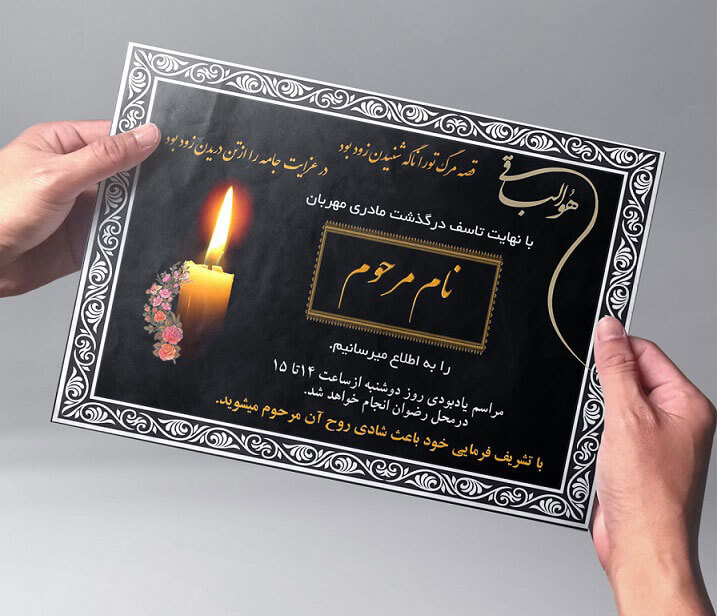 هو الباقی
قصه مرگ تو را ناگه شنیدن زود بود
در عزایت جامه را از تن دریدن زود بود
با نهایت تاسف درگذشت مادری مهربان
نام مرحوم
را به اطلاع میرسانیم.
مراسم یادبودی روز دوشنبه از ساعت ۱۴ تا ۱۵
در محل رضوان انجام خواهد شد.
با تشریف فرمایی خود باعث شادی روح آن مرحوم میشوید.